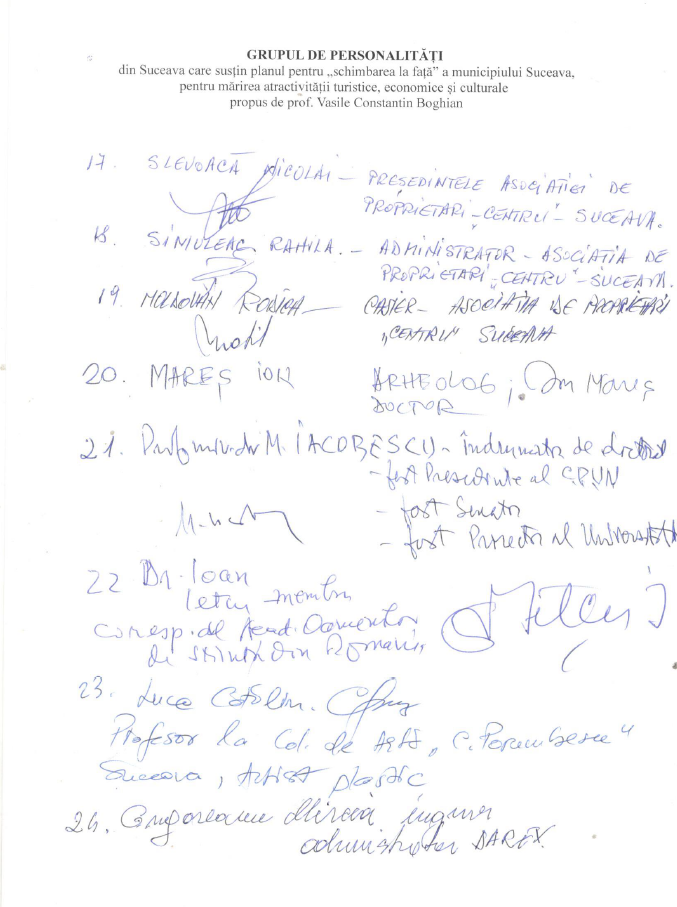 GRUPUL DE PERSONALITĂȚI
din Suceava care susțin planul pentru „schimbarea la față” a municipiului Suceava,
pentru mărirea atractivității turistice, economice și culturale
propus de prof. Vasile Constantin Boghian
17. SLEVOACĂ NICOLAI – PREȘEDINTELE ASOCIAȚIEI DE
PROPRIETARI „CENTRU” – SUCEAVA.
18. SIMULEAC RAHILA. – ADMINISTRATOR – ASOCIAȚIA DE
PROPRIETARI „CENTRU” – SUCEAVA.
19. MOLDOVAN RODICA – CASIER – ASOCIAȚIA DE PROPRIETARI
„CENTRU” SUCEAVA
20. MAREȘ ION ARHEOLOG; Ion Mareș
DOCTOR
21. Prof. univ. dr M. IACOBESCU – îndrumător de doctorat
– fost Președinte al CPUN
– fost Senator
– fost Prorector al Universității
22 Dr. Ioan
Iețcu membru
coresp. al Acad. Oamenilor
de știință din România
23. Luca Cătălin.
Profesor la Col. de Artă „C. Porumbescu”
Suceava, Artist plastic
24. Grigoreanu Mircea inginer
administrator DAREX